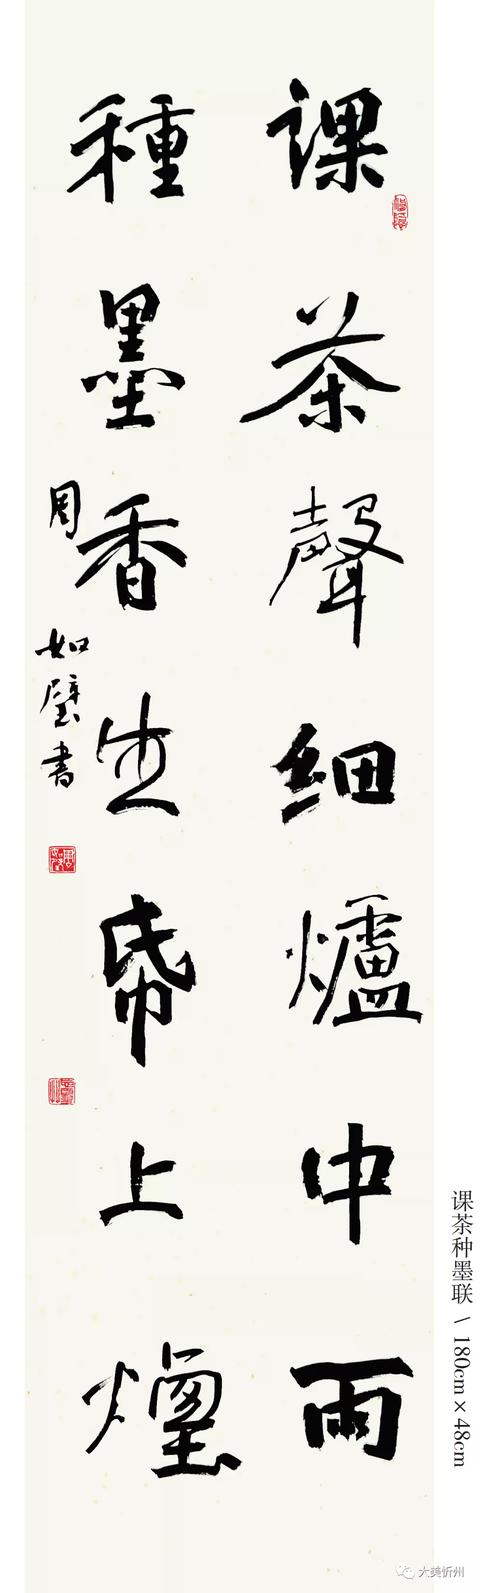 課茶聲細爐中雨
種墨香生帋上煙
周如璧書
课茶种墨联 \ 180cm×48cm
大美忻州